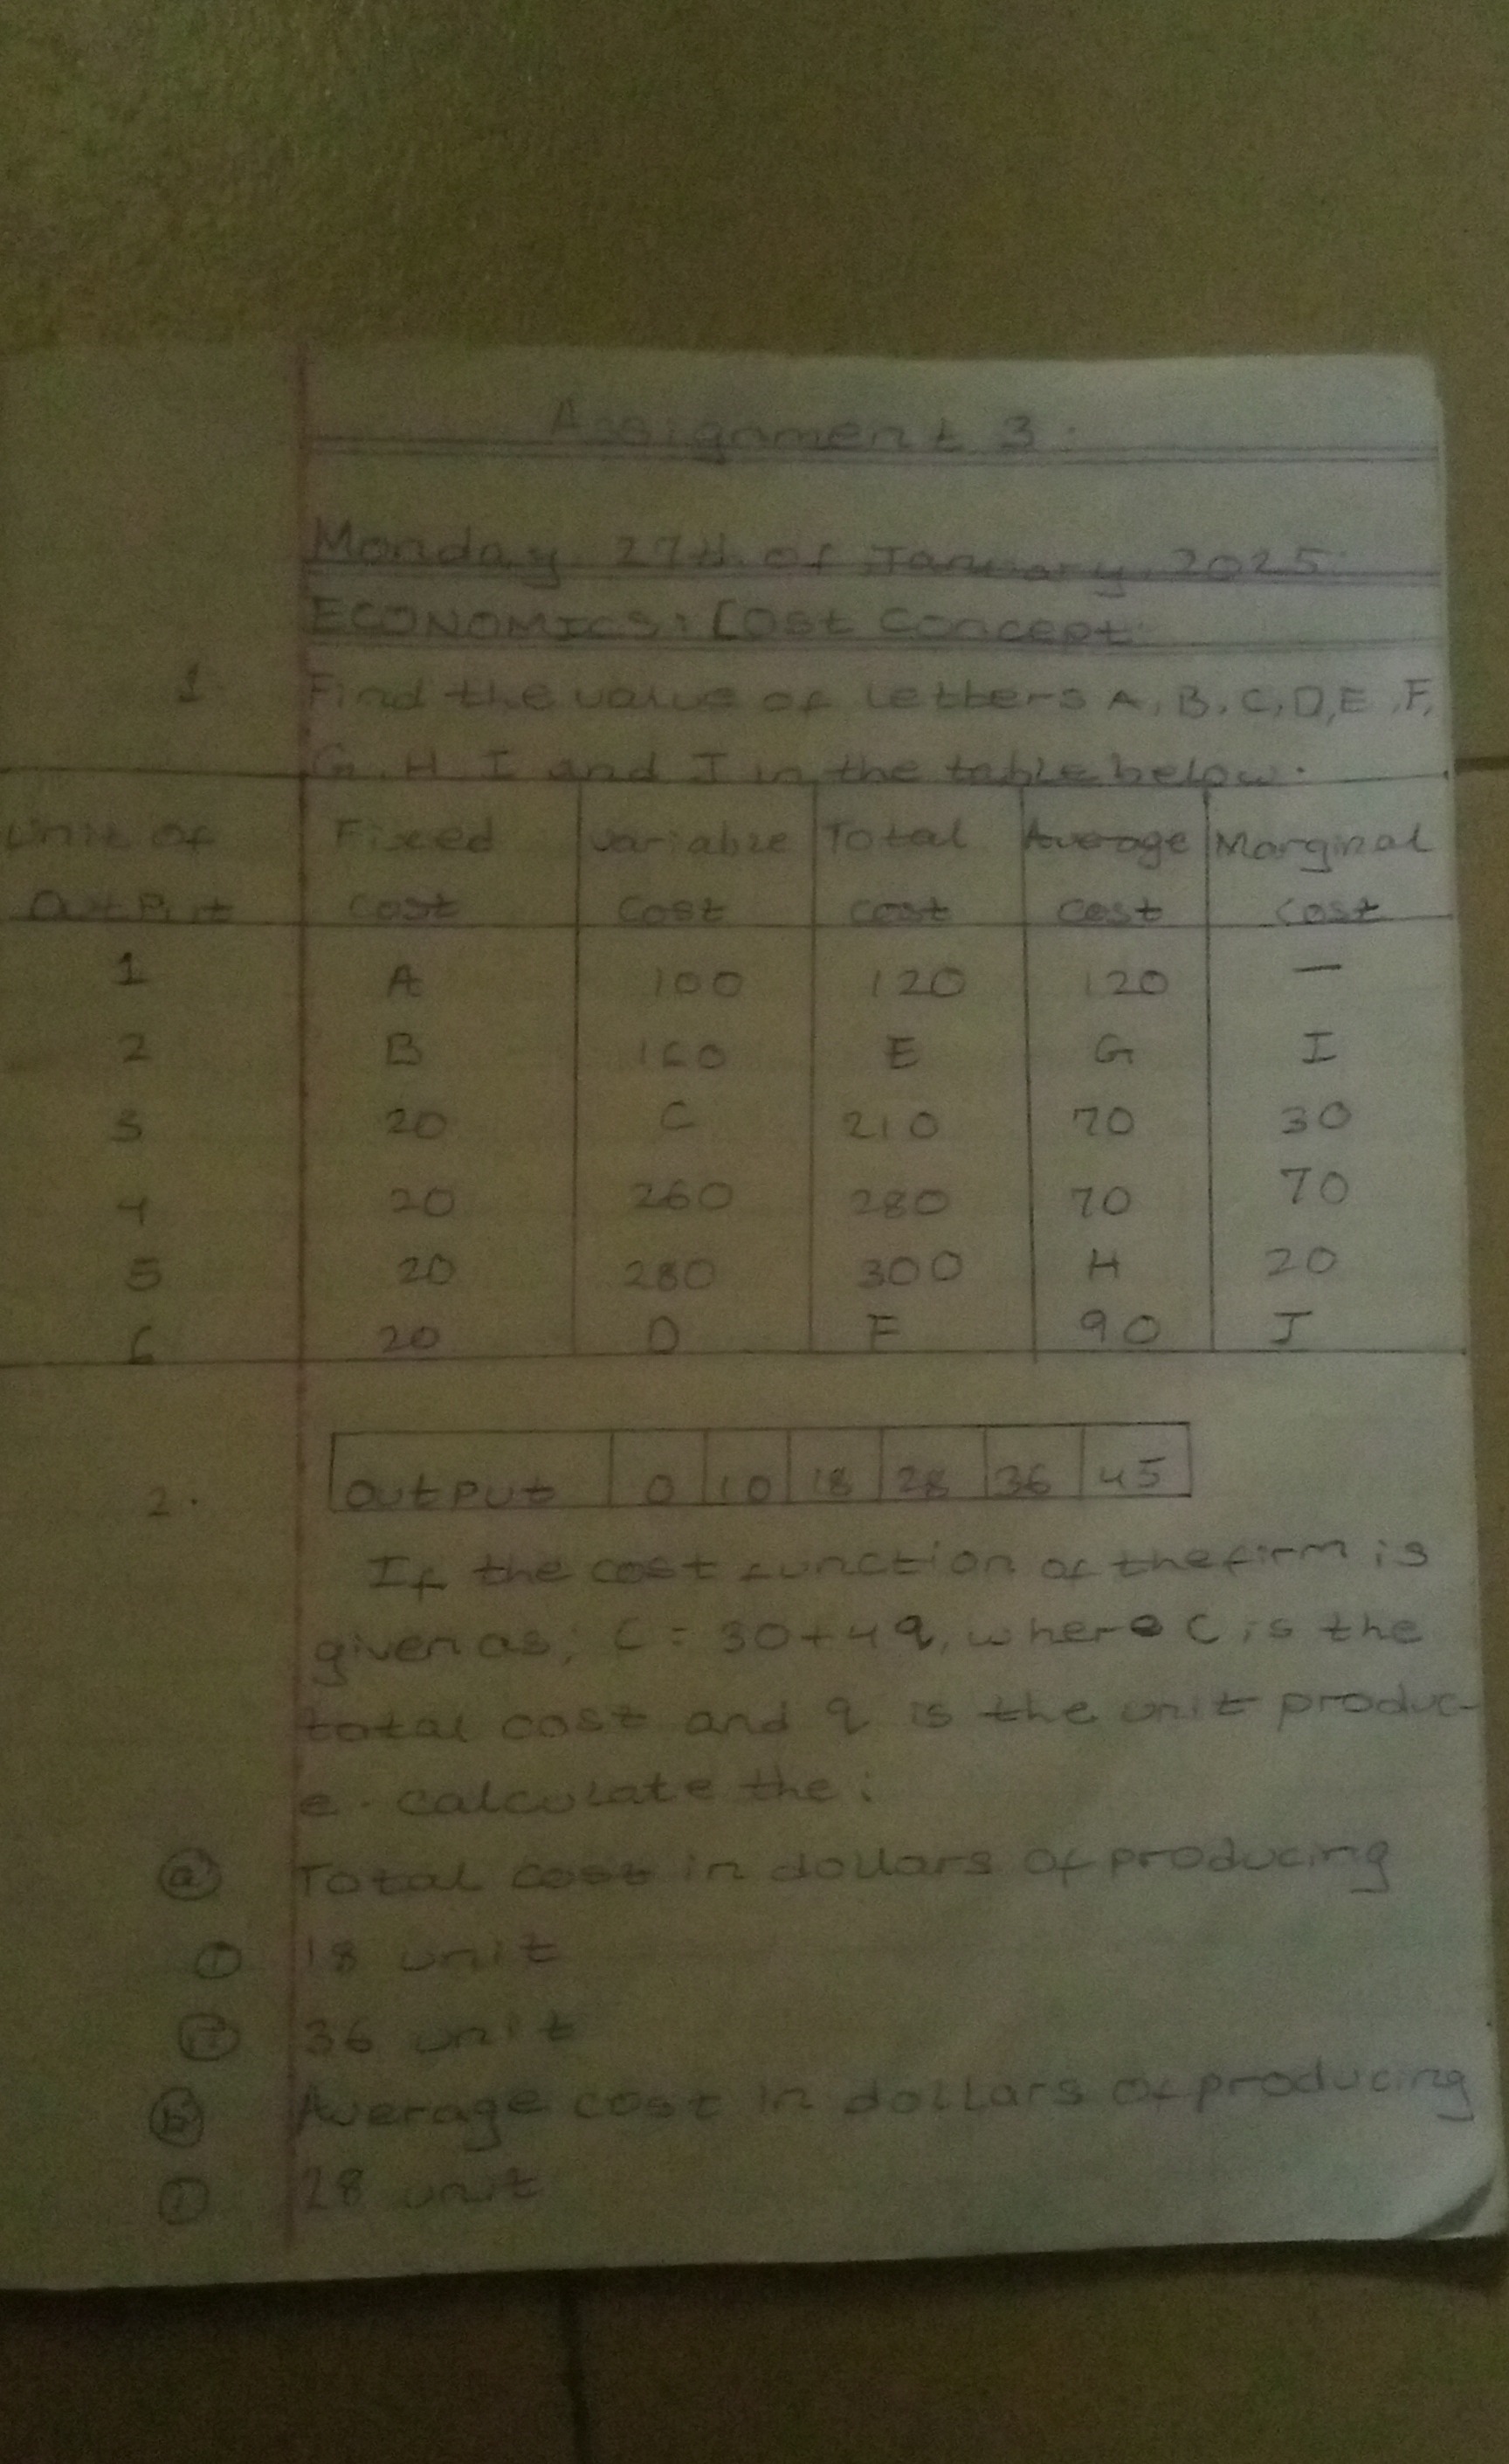 Assignment 3.
Monday 27th of January, 2025.
ECONOMICS: Cost Concept
1. Find the value of letters A, B, C, D, E, F,
G, H, I and J in the table below.
Unit of Fixed Variable Total Average Marginal
Output cost Cost cost cost cost
1 A 100 120 120 —
2 B 160 E G I
3 20 C 210 70 30
4 20 260 280 70 70
5 20 280 300 H 20
6 20 D F 90 J
2. Output 0 10 18 28 36 45
If the cost function of the firm is
given as; C = 30+4q, where C is the
total cost and q is the unit produc-
e. calculate the:
(a) Total cost in dollars of producing
(i) 18 unit
(ii) 36 unit
(b) Average cost in dollars of producing
(i) 28 unit